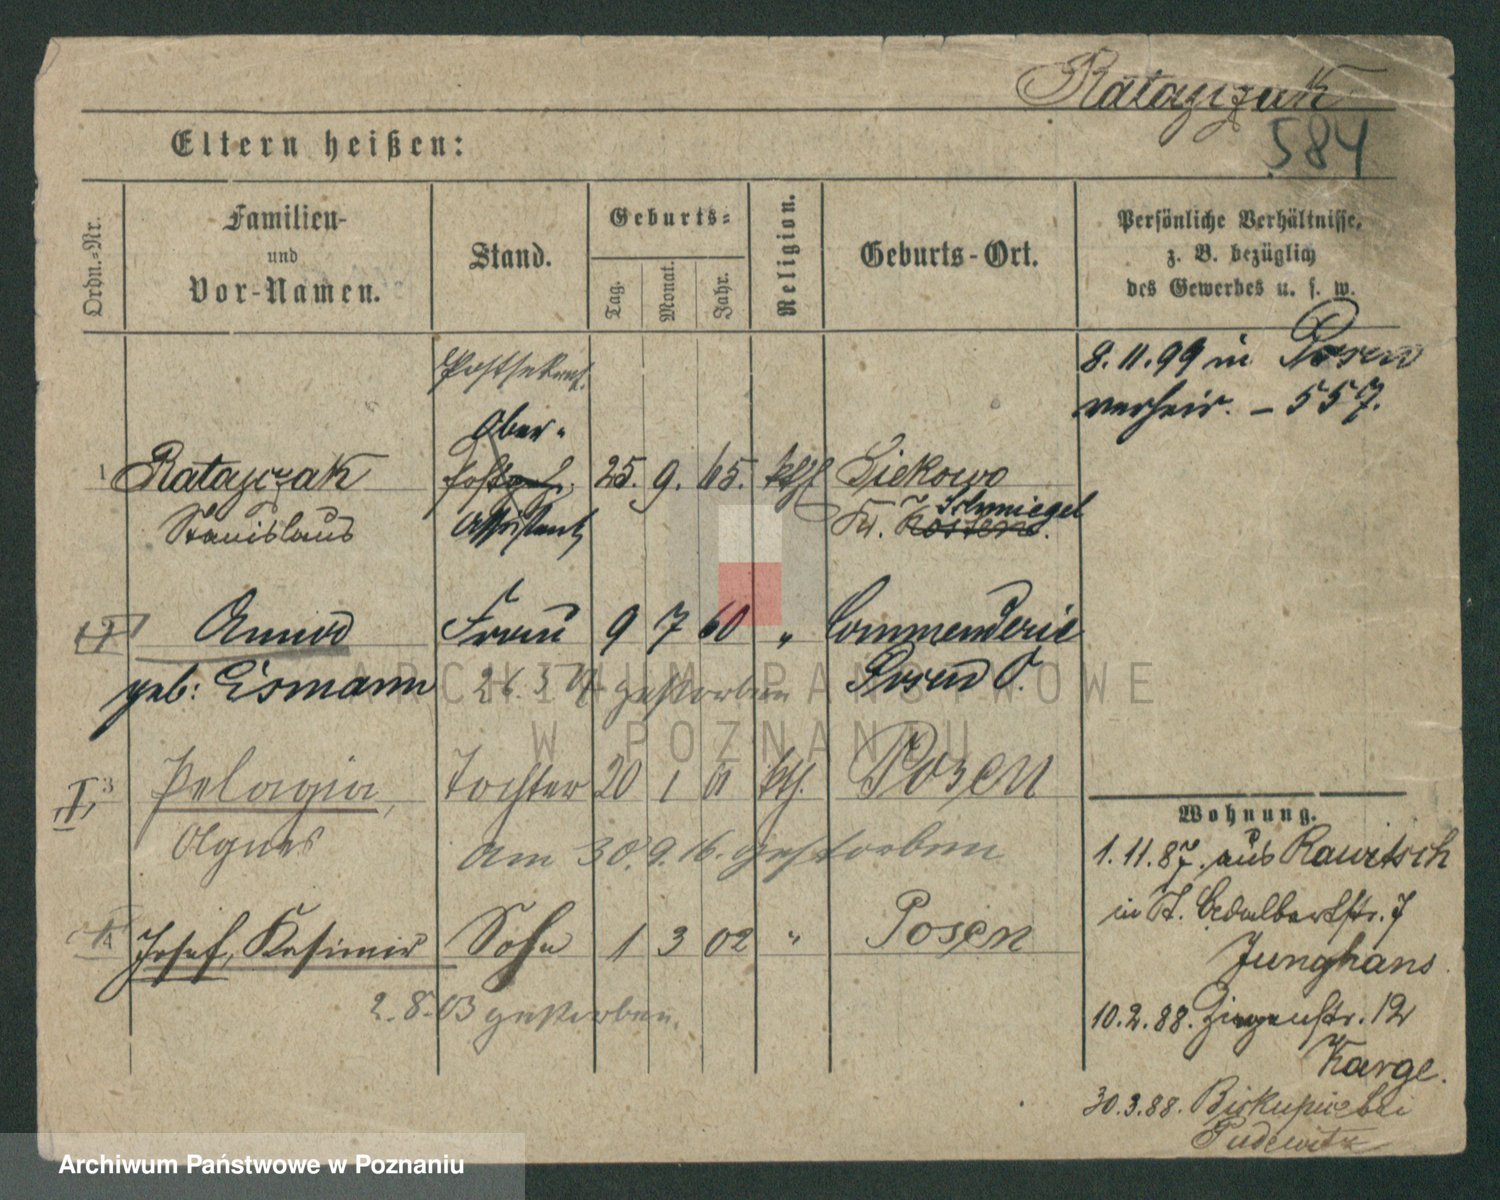 Ratajczak
584
Eltern heißen:
Ordn.-Nr.
Familien-
und
Vor-Namen.
Stand.
Geburts-
Tag.
Monat.
Jahr.
Religion.
Geburts-Ort.
Persönliche Verhältnisse,
z. B. bezüglich
des Gewerbes u. s. w.
8.11.99 in Posen
verheir. – 557.
Postsekret.
Ober-
1 Ratajczak Postgeh. 25. 9. 65. kth Siekowo
Stanislaus Assistent Kr. Kosten. Schmiegel
2 Anna Frau 9 7 60 " Commenderie
geb: Eismann 26.3.04 gestorben Posen O.
II, 3 Pelagia, Tochter 20 1 01 kth. Posen
Agnes am 30.9.16. gestorben
4 Josef, Kasimir Sohn 1 3 02 " Posen
2.8.03 gestorben.
Wohnung.
1.11.87. aus Rawitsch
in St. Adalbertstr. 7
Junghans.
10.2.88. Ziegenstr. 12
Karge.
30.3.88. Biskupice bei
Pudewitz
ARCHIWUM PAŃSTWOWE
W POZNANIU
Archiwum Państwowe w Poznaniu